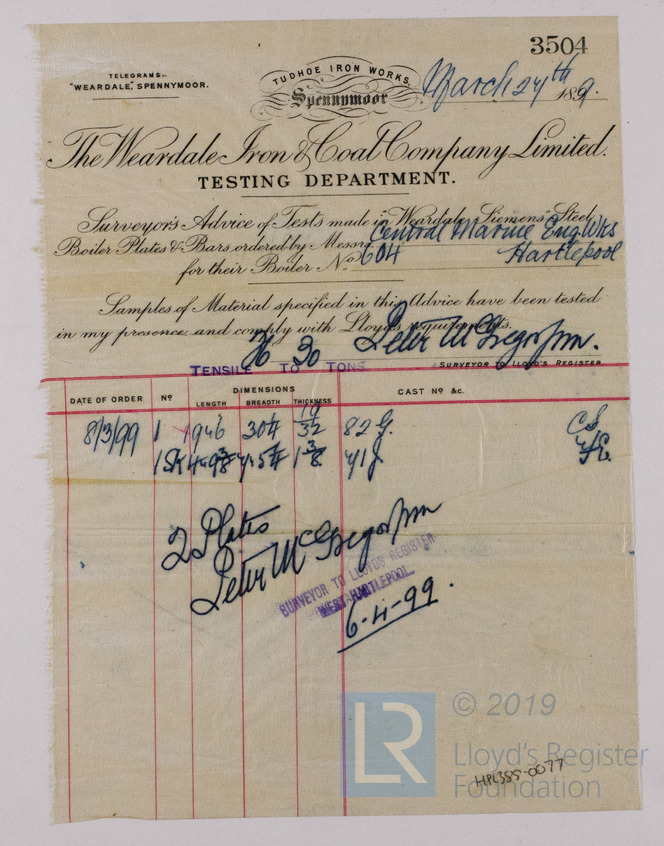 3504
TELEGRAMS:-
"WEARDALE," SPENNYMOOR.
TUDHOE IRON WORKS,
Spennymoor
March 24th 1899.
The Weardale Iron & Coal Company Limited.
TESTING DEPARTMENT.
Surveyor's Advice of Tests made in "Weardale Siemens" Steel
Boiler Plates & Bars ordered by Messrs Central Marine Eng Wks
Hartlepool
for their Boiler No. 604
Samples of Material specified in this Advice have been tested
in my presence and comply with Lloyd's requirements.
Peter McGregor Jnr.
26 30
TENSILE TO TONS
SURVEYOR TO LLOYD'S REGISTER
DATE OF ORDER No DIMENSIONS CAST No &c.
LENGTH BREADTH THICKNESS
8/3/99 1 30 19/32 82 G. CS
1 Sk 1 3/8
2 Plates
Peter McGregor Jnr
SURVEYOR TO LLOYDS REGISTER
WEST HARTLEPOOL.
6-4-99.
LR
© 2019
Lloyd's Register
Foundation
HPL385-0077